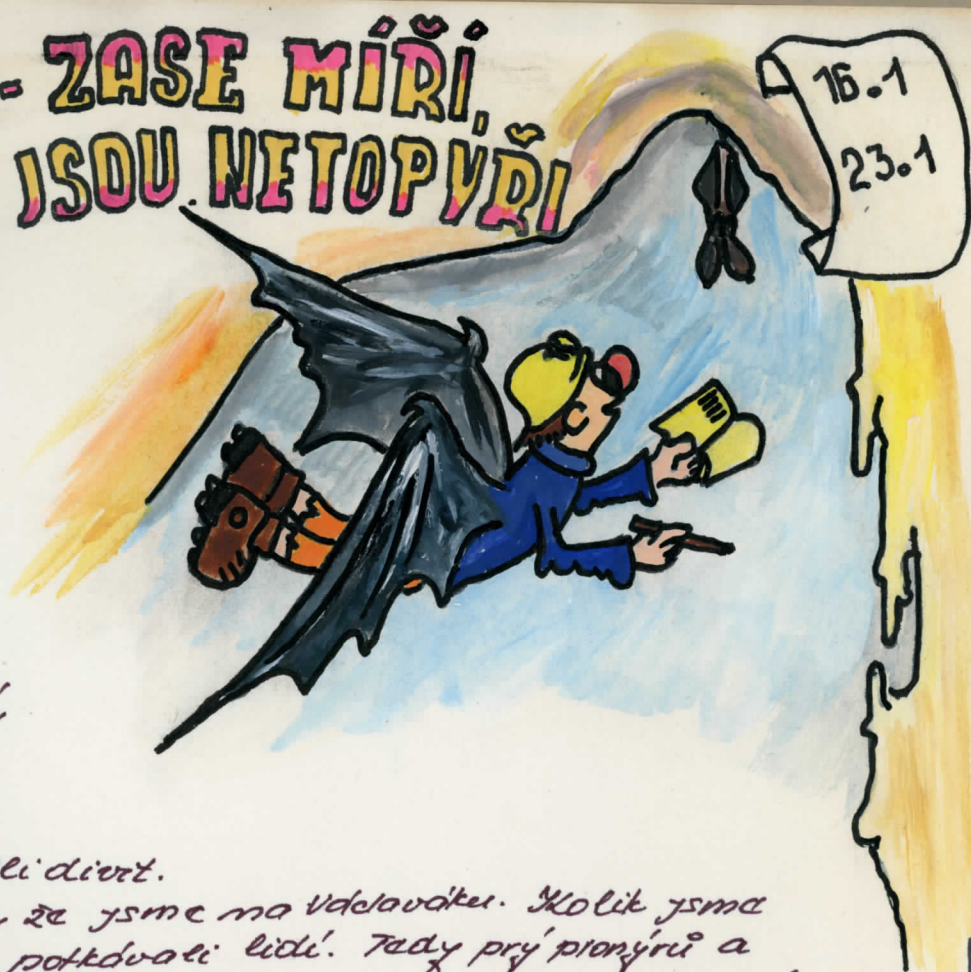 - ZASE MÍŘÍ,
JSOU NETOPYŘI
16.1
23.1
li divit.
že jsme na Václaváku. Kolik jsme
potkávali lidí. Tady prý pionýrů a